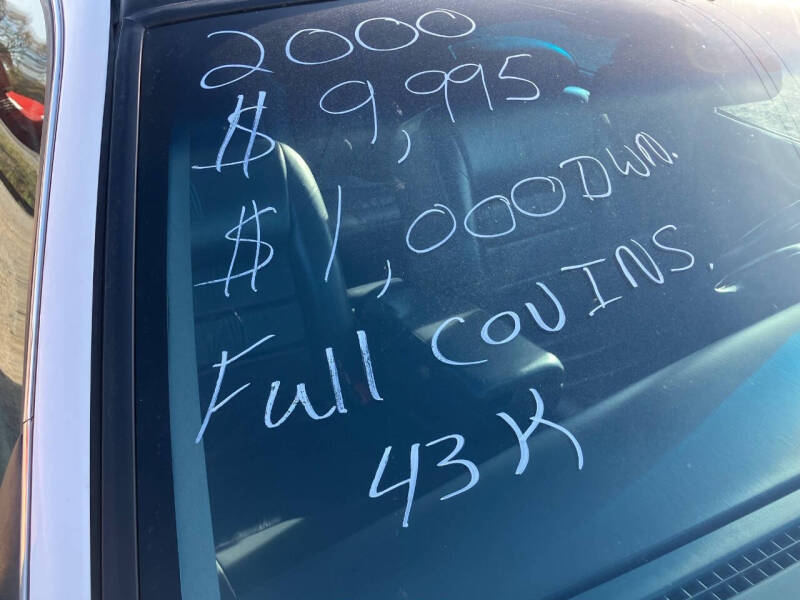 2000
$ 9,995
$ 1,000 DWN.
Full COV INS.
43K